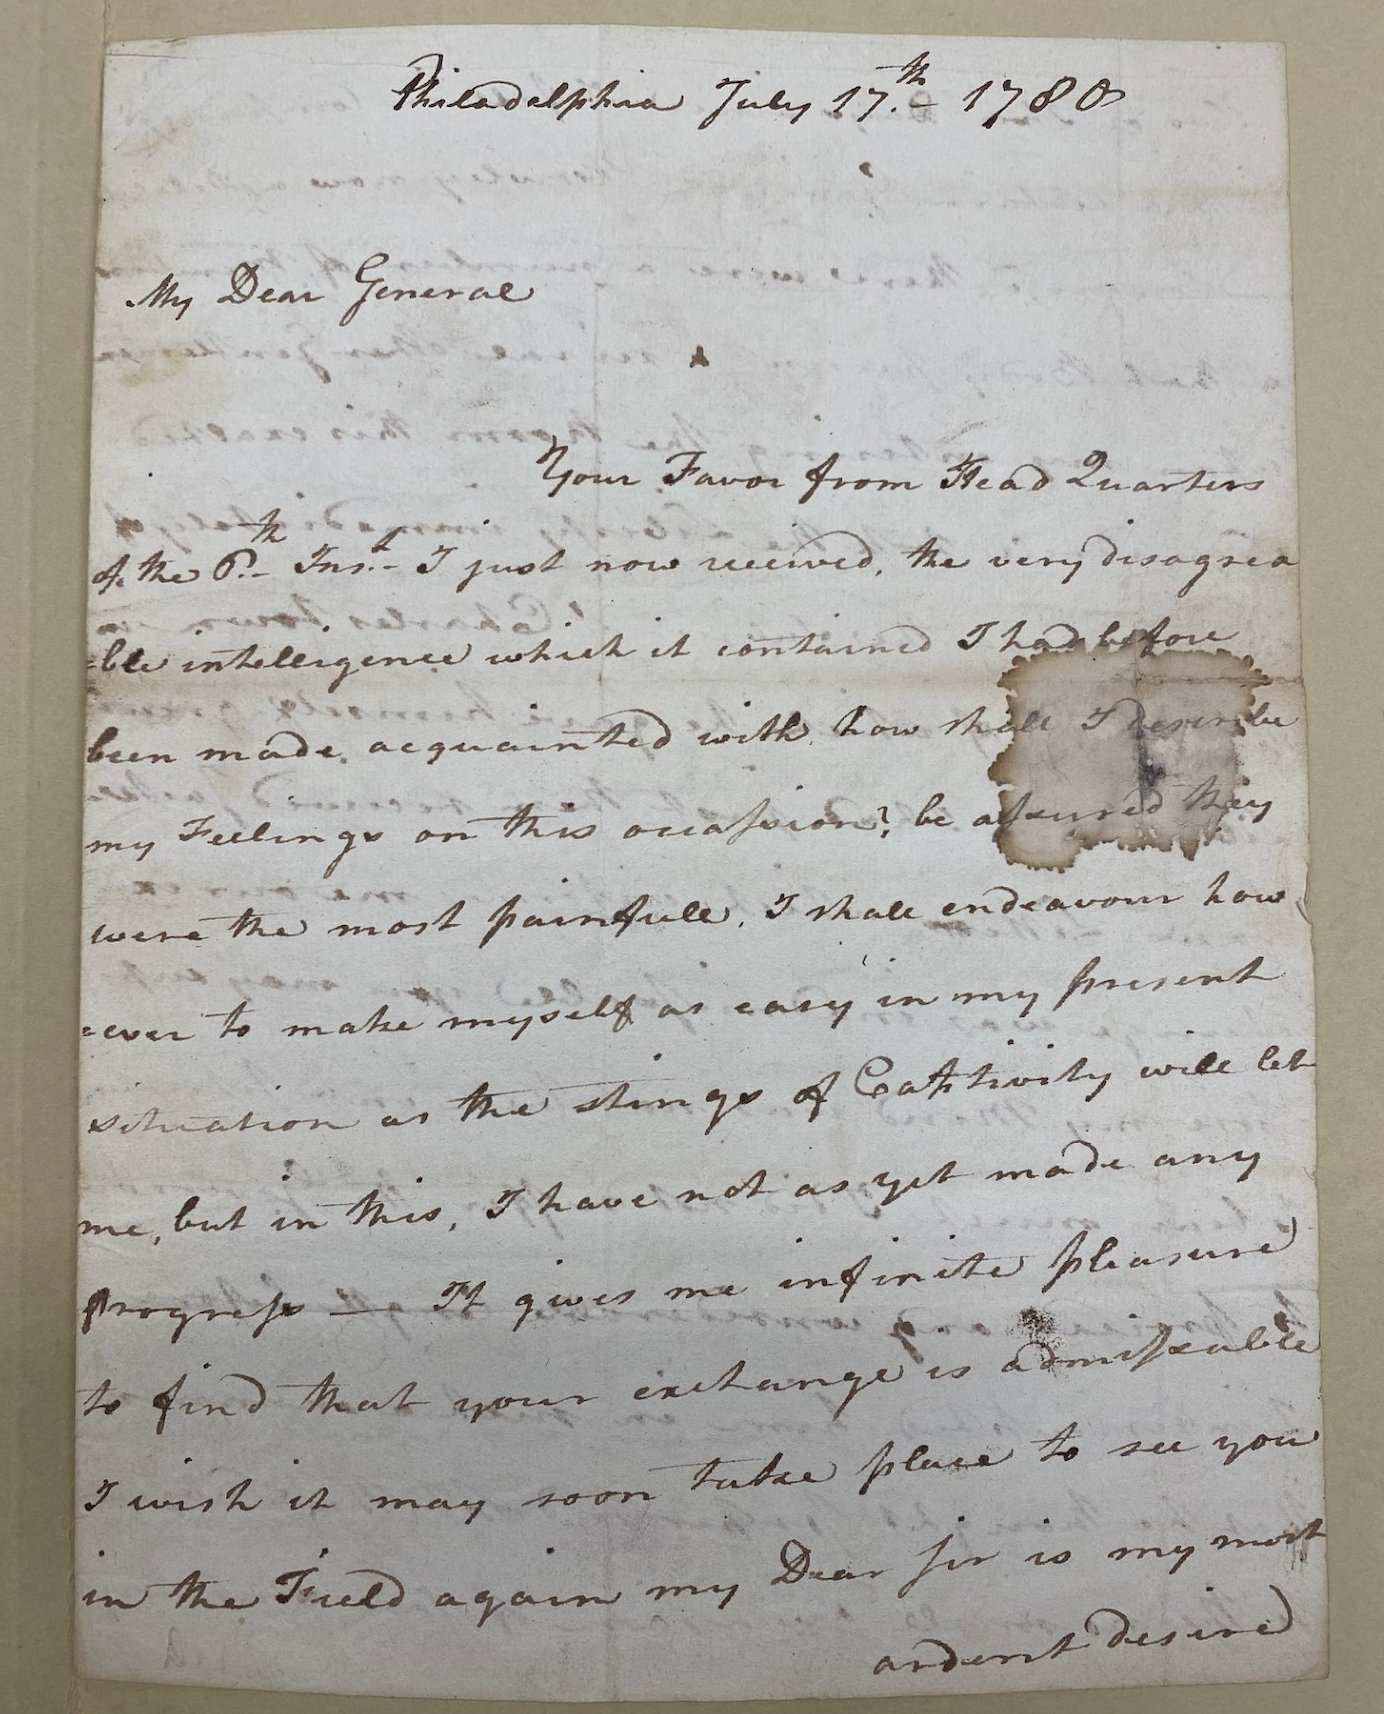 Philadelphia July 17.th 1780
My Dear General
Your Favor from Head Quarters
of the 6.th Ins.t I just now received, the very disagrea
=ble intelligence which it contained I had before
been made acquainted with, how shall I describe
my Feelings on this occassion?, be assured they
were the most painfull, I shall endeavour how
=ever to make myself as easy in my present
situation as the stings of Captivity will let
me, but in this, I have not as yet made any
Progress — It gives me infinite pleasure
to find that your exchange is admissable
I wish it may soon take place to see you
in the Field again my Dear Sir is my most
ardent desire